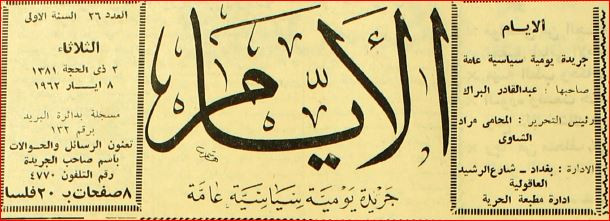 الايام
جريدة يومية سياسية عامة
صاحبها : عبدالقادر البراك
رئيس التحرير : المحامي مراد
الشاوي
الادارة : بغداد - شارع الرشيد
العاقولية
ادارة مطبعة الحرية
الأيام
جريدة يومية سياسية عامة
العدد ٢٦ السنة الاولى
الثلاثاء
٣ ذي الحجة ١٣٨١
٨ ايار ١٩٦٢
مسجلة بدائرة البريد
برقم ١٣٢
تعنون الرسائل والحوالات
باسم صاحب الجريدة
رقم التلفون ٤٧٧٠
٨ صفحات بـ ٢٠ فلسا